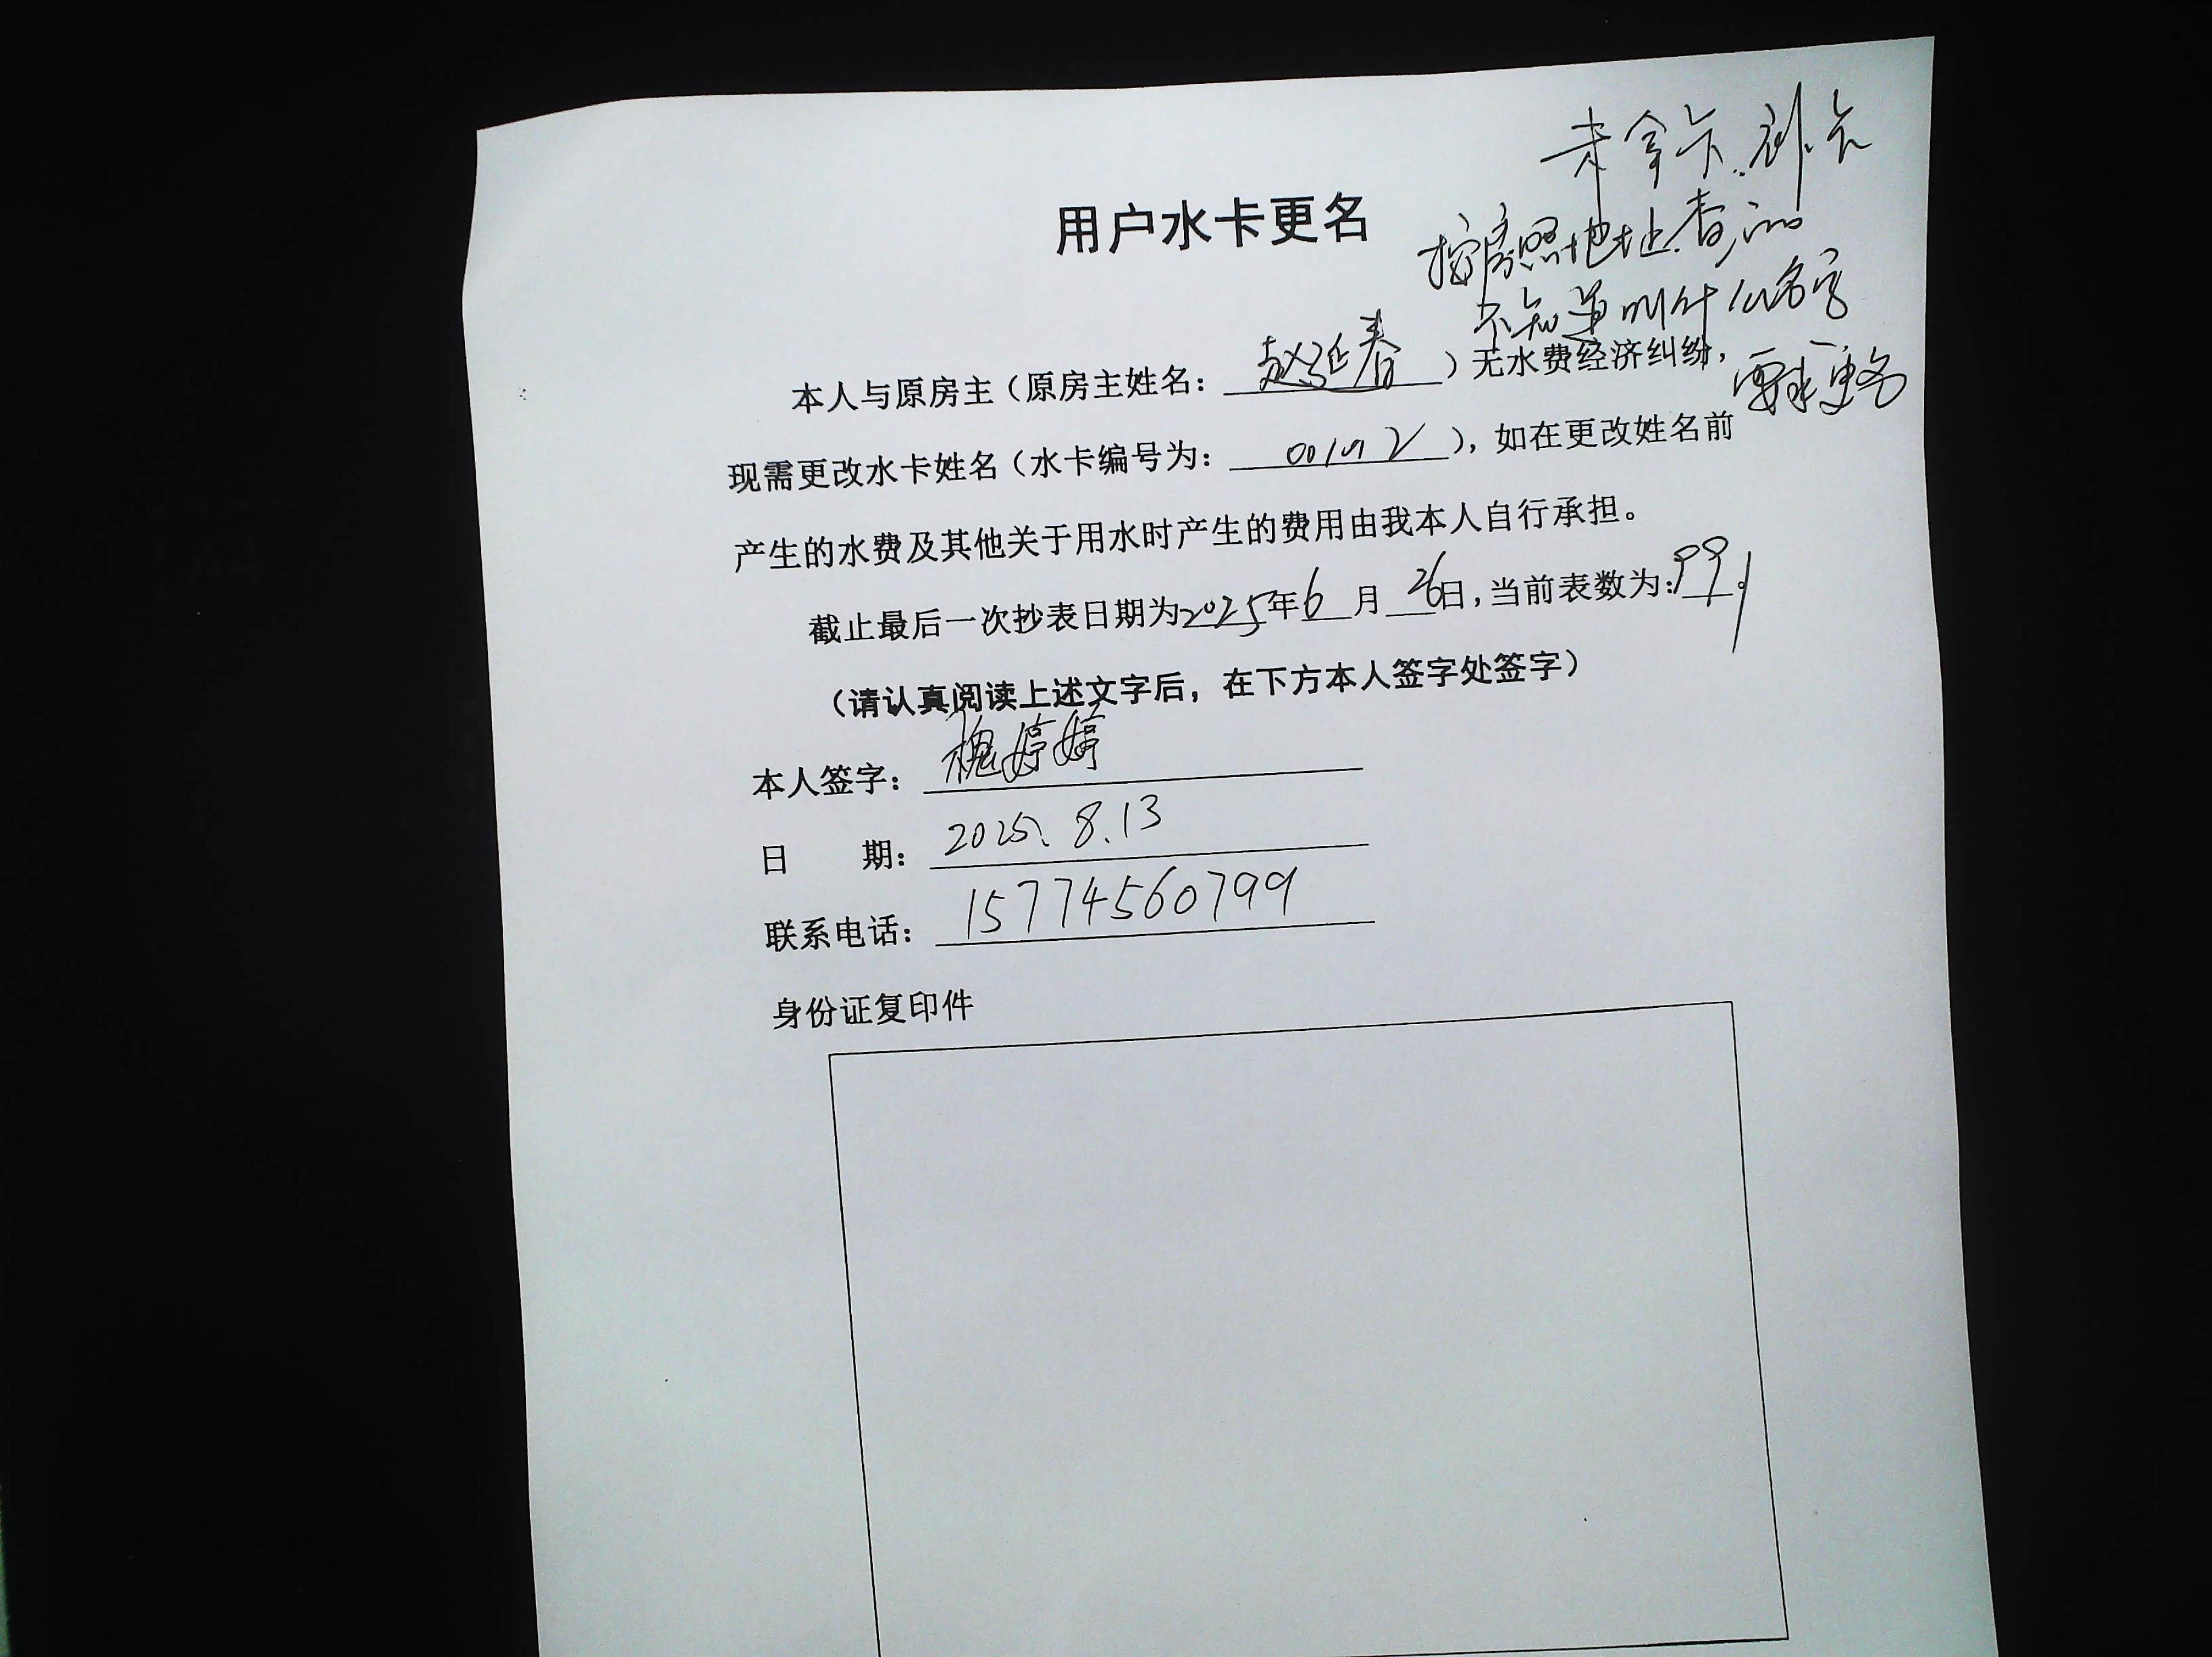 未拿卡.补卡
用户水卡更名
按房照地址查
不知道叫什么名字
要求更名
本人与原房主（原房主姓名：赵延春）无水费经济纠纷，
现需更改水卡姓名（水卡编号为：），如在更改姓名前
产生的水费及其他关于用水时产生的费用由我本人自行承担。
截止最后一次抄表日期为2025年6月26日，当前表数为：991。
（请认真阅读上述文字后，在下方本人签字处签字）
本人签字：槐婷婷
日 期：2025.8.13
联系电话：15774560799
身份证复印件